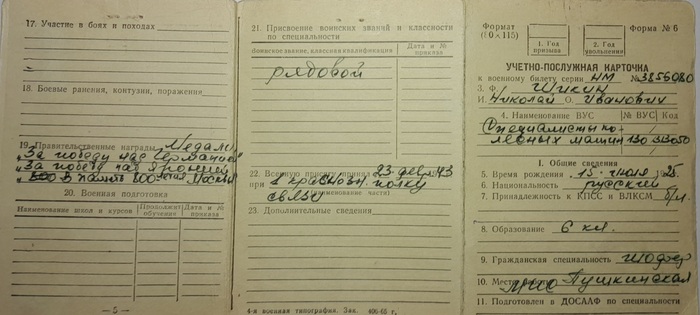 17. Участие в боях и походах
18. Боевые ранения, контузии, поражения
19. Правительственные награды Медали
„За победу над Германией"
„За победу над Японией"
В память 800-летия Москвы
20. Военная подготовка
Наименование школ и курсов
Продолжит. обучения
Дата и № приказа
— 5 —
21. Присвоение воинских званий и классности
по специальности
Воинское звание, классная квалификация
Дата и № приказа
рядовой
22. Военную присягу принял 23 февр. 43
при 1 полку
(наименование части)
связи
23. Дополнительные сведения
4-я военная типография. Зак. 406-65 г.
Формат
(80×115)
Форма № 6
1. Год призыва
2. Год увольнения
УЧЕТНО-ПОСЛУЖНАЯ КАРТОЧКА
к военному билету серии НМ № 3856080
3. Ф. Шикин
И. Николай О. Иванович
4. Наименование ВУС
№ ВУС
Код
Специалисты ко-
лесных машин 130
I. Общие сведения
5. Время рождения 15 июля 25.
6. Национальность русский
7. Принадлежность к КПСС и ВЛКСМ б/п.
8. Образование 6 кл.
9. Гражданская специальность шофер
10. Место Пушкинская
11. Подготовлен в ДОСААФ по специальности